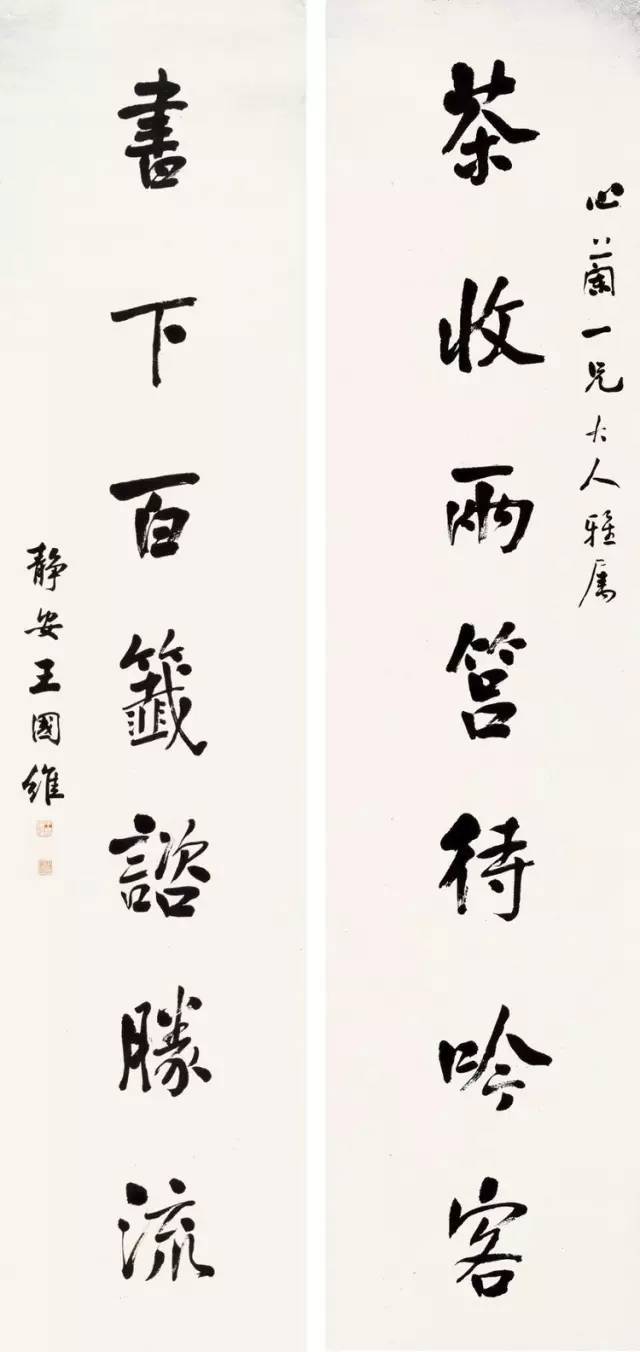 心蘭一兄大人雅屬
茶收兩筥待吟客
書下百籤諮勝流
靜安王國維